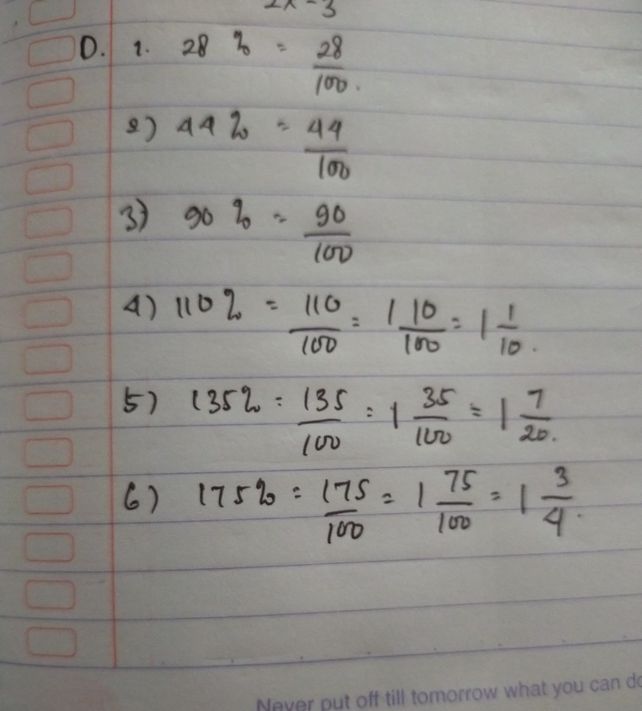 2x - 3
D. 1. 28 % = 28/100.
2) 44% = 44/100
3) 90 % = 90/100
4) 110% = 110/100 = 1 10/100 = 1 1/10.
5) 135% = 135/100 = 1 35/100 = 1 7/20.
6) 175% = 175/100 = 1 75/100 = 1 3/4.
Never put off till tomorrow what you can do